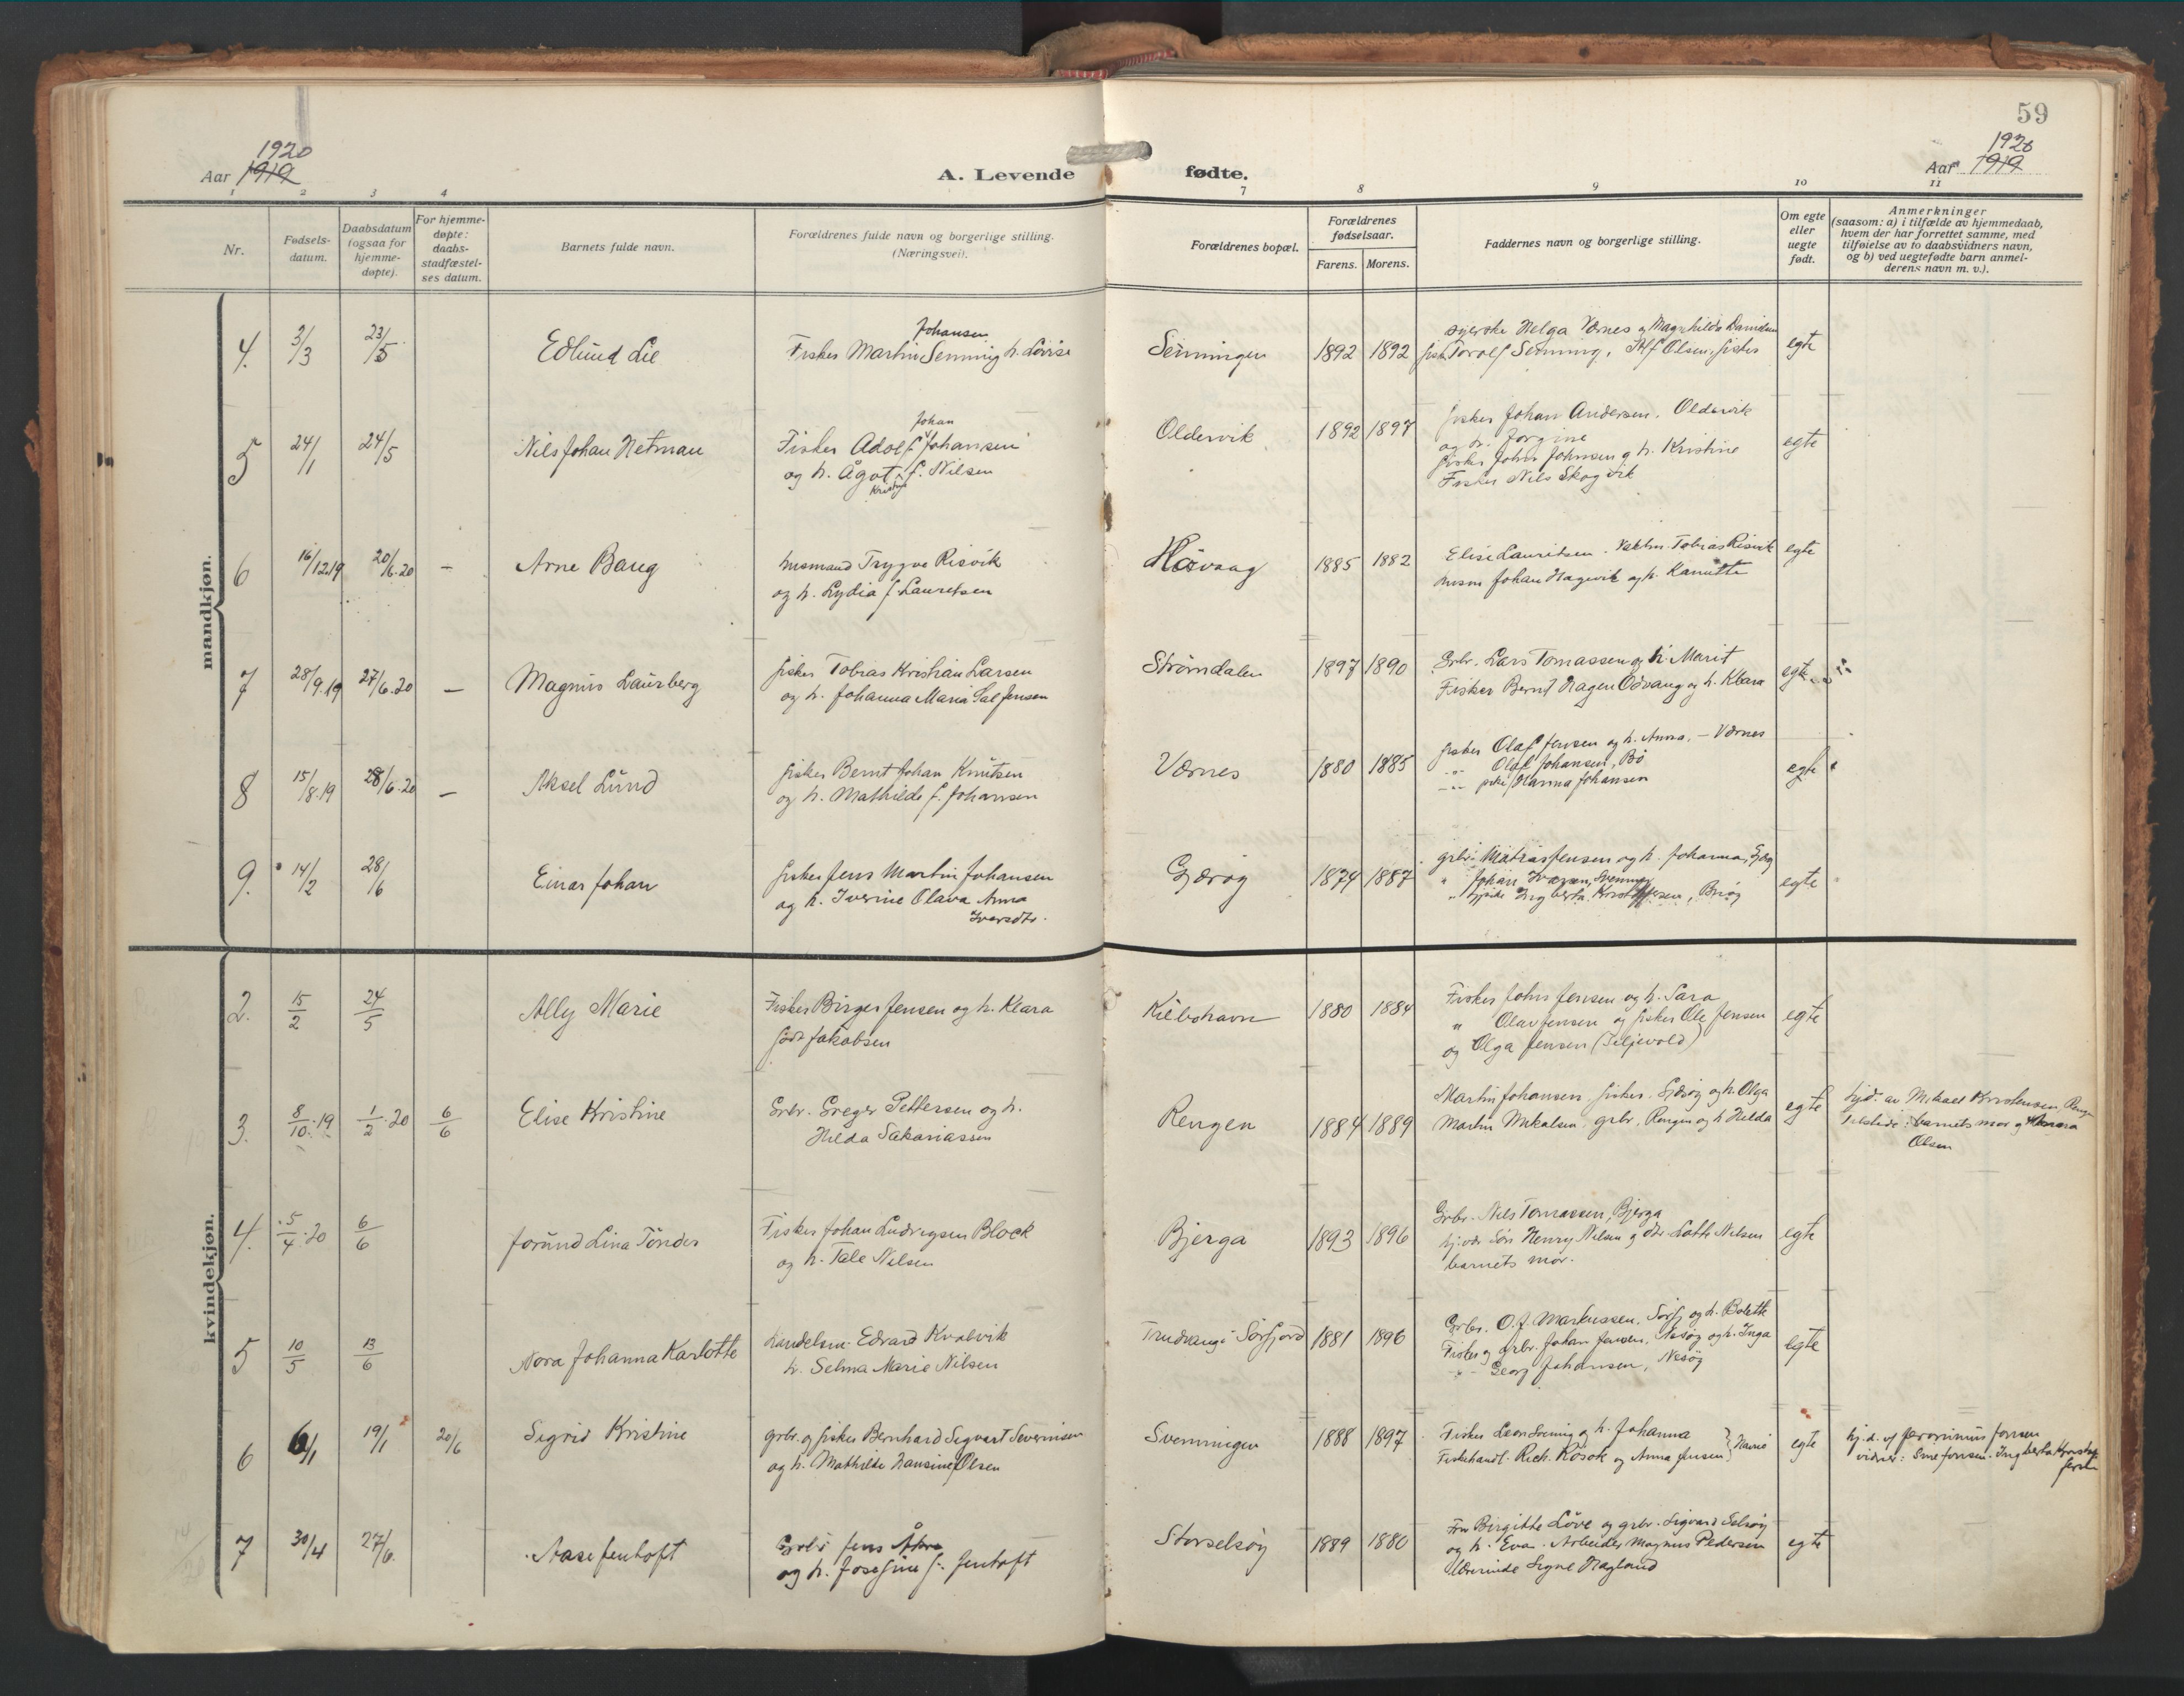 59
1920
Aar 1919
A. Levende fødte.
1920
Aar 1919
1 2 3 4 7 8 9 10 11
Nr.
Fødselsdatum.
Daabsdatum (ogsaa for hjemmedøpte).
For hjemmedøpte: daabsstadfæstelses datum.
Barnets fulde navn.
Forældrenes fulde navn og borgerlige stilling. (Næringsvei).
Forældrenes bopæl.
Forældrenes fødselsaar.
Farens. Morens.
Faddernes navn og borgerlige stilling.
Om egte eller uegte født.
Anmerkninger
(saasom: a) i tilfælde av hjemmedaab, hvem der har forrettet samme, med tilføielse av to daabsvidners navn, og b) ved uegtefødte barn anmelderens navn m. v.).
mandkjøn.
4. 3/3 23/5 Edlund Lie
Johansen
Fisker Martin Senning h. Lovise
Senningen 1892 1892
syerske Helga Værnes og Magnhilda Danielsen
fisk. Torolf Senning, Alf Olsen, fisker
egte
5 24/1 24/5 Nils Johan Hetman
Johan
Fisker Adolf Johansen
og h. Ågot f. Nilsen
Kristine
Oldervik 1892 1897
fisker Johan Andersen, Oldervik
og h. Jorgine
fisker John Johnsen og h. Kristine
Fisker Nils Skogvik
egte
6 16/12.19 20/6.20 – Arne Baug
husmand Trygve Risvik
og h. Lydia f. Lauritsen
Håvaag 1885 1882
Elise Lauritsen. Tobias Risvik
husm Johan Hagevik og h. Kanutte
egte
7 28/9.19 27/6.20 – Magnus Laurberg
fisker Tobias Kristian Larsen
og h. Johanna Maria Sal Jensen
Strømdalen 1897 1890
Grbr. Lars Tomassen og h. Marit
Fisker Bernt Hagen Odvang og h. Klara
egte
8 15/8.19 28/6.20 – Aksel Lund
fisker Bernt Johan Knutsen
og h. Mathilde f. Johansen
Værnes 1880 1885
fisker Olaf Jensen og h. Anna. – Værnes
-"- Olaf Johansen, Bø
-"- pike Hanna Johansen
egte
9. 14/2 28/6 Einar Johan
fisker Jens Martin Johansen
og h. Iverine Olava Anna
Iversdtr.
Gjærøy 1874 1887
grbr. Matias Jensen og h. Johanna, Gjærøy
" Johan Svenning
" Ingberta Kristoffersen,
egte
kvindekjøn.
2. 15/2 24/5 Ally Marie
Fisker Birger Jensen og h. Klara
født Jakobsen
Kilbohavn 1880 1884
Fisker John Jensen og h. Sara
" Olav Jensen og fisker Ole Jensen
og Olga Jensen (Seljevold)
egte
3. 8/10.19 1/2.20 6/6 Elise Kristine
Grbr. Greger Pettersen og h.
Hilda Sakariassen
Rengen 1884 1889
Martin Johansen, fisker, Gjærøy og h. Olga
Martin Mikalsen, grbr., Rengen og h Hilda
egte
hjd. av Mikael Kristensen, Rengen
tilstede: barnets mor og Anna
Olsen
4. 5/4.20 6/6 Jorund Lina Tönder
Fisker Johan Ludvigsen Block
og h. Tale Nilsen
Bjerga 1893 1896
Grbr. Nils Tomassen, Bjerga
hj.vær. søn Henry Nilsen og dtr. Lotte Nilsen
barnets mor.
egte
5 10/5 13/6 Nora Johanna Karlotte
Handelsm. Edvard Kvalvik
h. Selma Marie Nilsen
Trudvang i Sørfjord 1881 1896
Grbr. O. J. Markussen, Sørfj og h. Bolette
Fisker og grbr. Johan Jensen, Nesøy og h. Inga
-"- Georg Johansen, Nesøy
egte
6 6/1 19/1 20/6 Sigrid Kristine
grbr. og fisker Bernhard Sigvart Severinsen
og h. Mathilde Hansine f Olsen
Svenningen 1888 1897
Fisker Leon Svening og h. Johanna
Fiskehandl. Rich. Røsok og Anna Jensen } Hamnø
egte
hj.d. af Jeronimus Jonsen
vidner: Sine Jonsen. Ingberta Kristoffersen
7 30/4 27/6. Aase Jentoft
Grbr Jens Åkre
og h. Josefine f. Jentoft
Storselsøy 1889 1880
Fru Birgitte Löve og grbr. Sigvard Selsøy
og h. Eva. Arbeider Magnus Pedersen
lærerinde Signe Hagland
egte